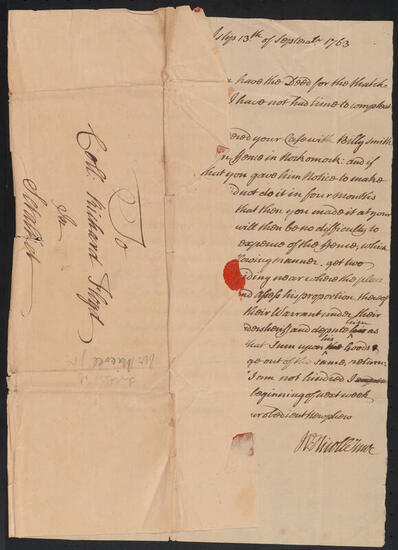 Islip 13th of Septembr 1763
have the Deed for the thatch
I have not had time to compleat
ered your Case with Billy Smith
Fence in Hockomock: and if
that you gave him Notice to make
did not do it in four months
that then you made it at your
will then be no difficulty to
expence of the Fence, which
lowing manner. get two
iding near where the place
nd assess his proportion thereof
their Warrant under their
dershens and depute him as
that sum upon his Goods &
ge out of the same, return
I am not hindred I
beginning of next week
ur obedient Nephew
Wm Nicoll Junr
To
Coll: Richard Floyd
In
Setalket